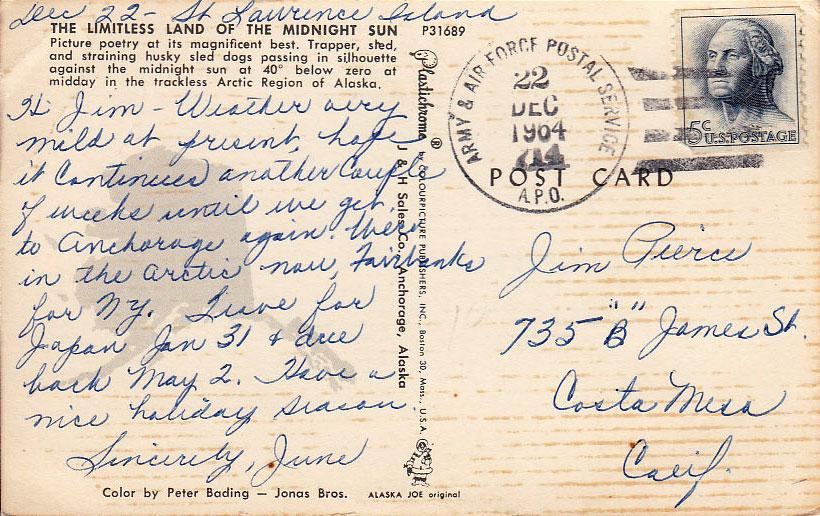 Dec 22 - St Lawrence Island
THE LIMITLESS LAND OF THE MIDNIGHT SUN P31689
Picture poetry at its magnificent best. Trapper, shed,
and straining husky sled dogs passing in silhouette
against the midnight sun at 40° below zero at
midday in the trackless Arctic Region of Alaska.
Hi Jim - Weather very
mild at present, hope
it continues another couple
of weeks until we get
to Anchorage again. We're
in the arctic now, Fairbanks
for NY. Leave for
Japan Jan 31 & due
back May 2. Have a
nice holiday season.
Sincerely, June
Color by Peter Bading — Jonas Bros. ALASKA JOE original
Plastichrome ® by COLOURPICTURE PUBLISHERS, INC., Boston 30, Mass., U.S.A.
J & H Sales Co., Anchorage, Alaska
ARMY & AIR FORCE POSTAL SERVICE
22
DEC
1964
714
A.P.O.
5c U.S. POSTAGE
POST CARD
Jim Pierce
735 "B" James St.
Costa Mesa
Calif.